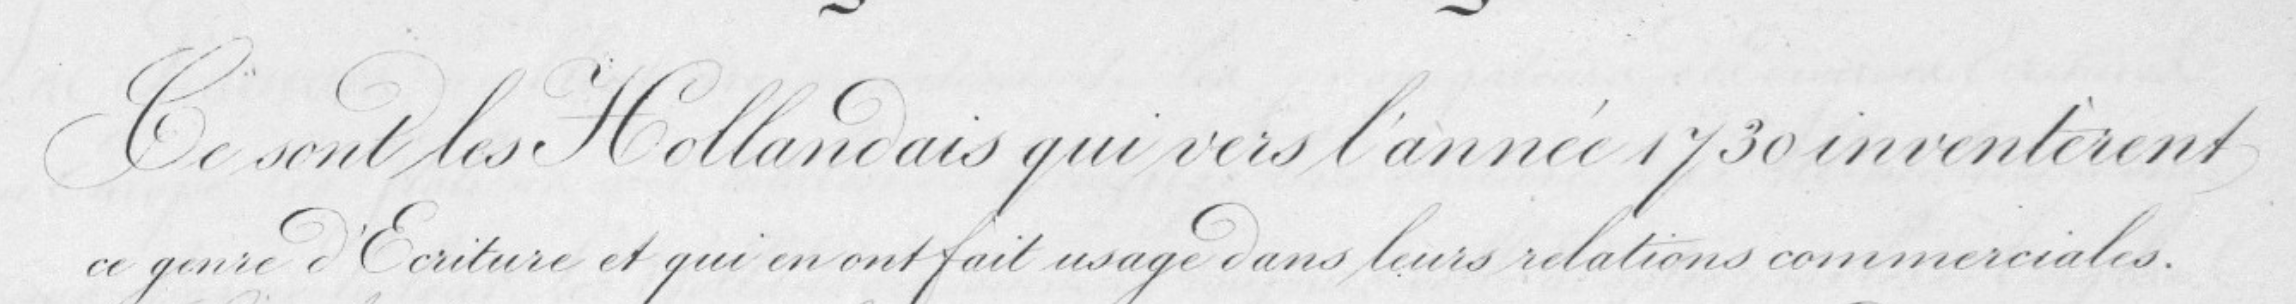 Ce sont les Hollandais qui vers l'année 1730 inventèrent
ce genre d'Ecriture et qui en ont fait usage dans leurs relations commerciales.